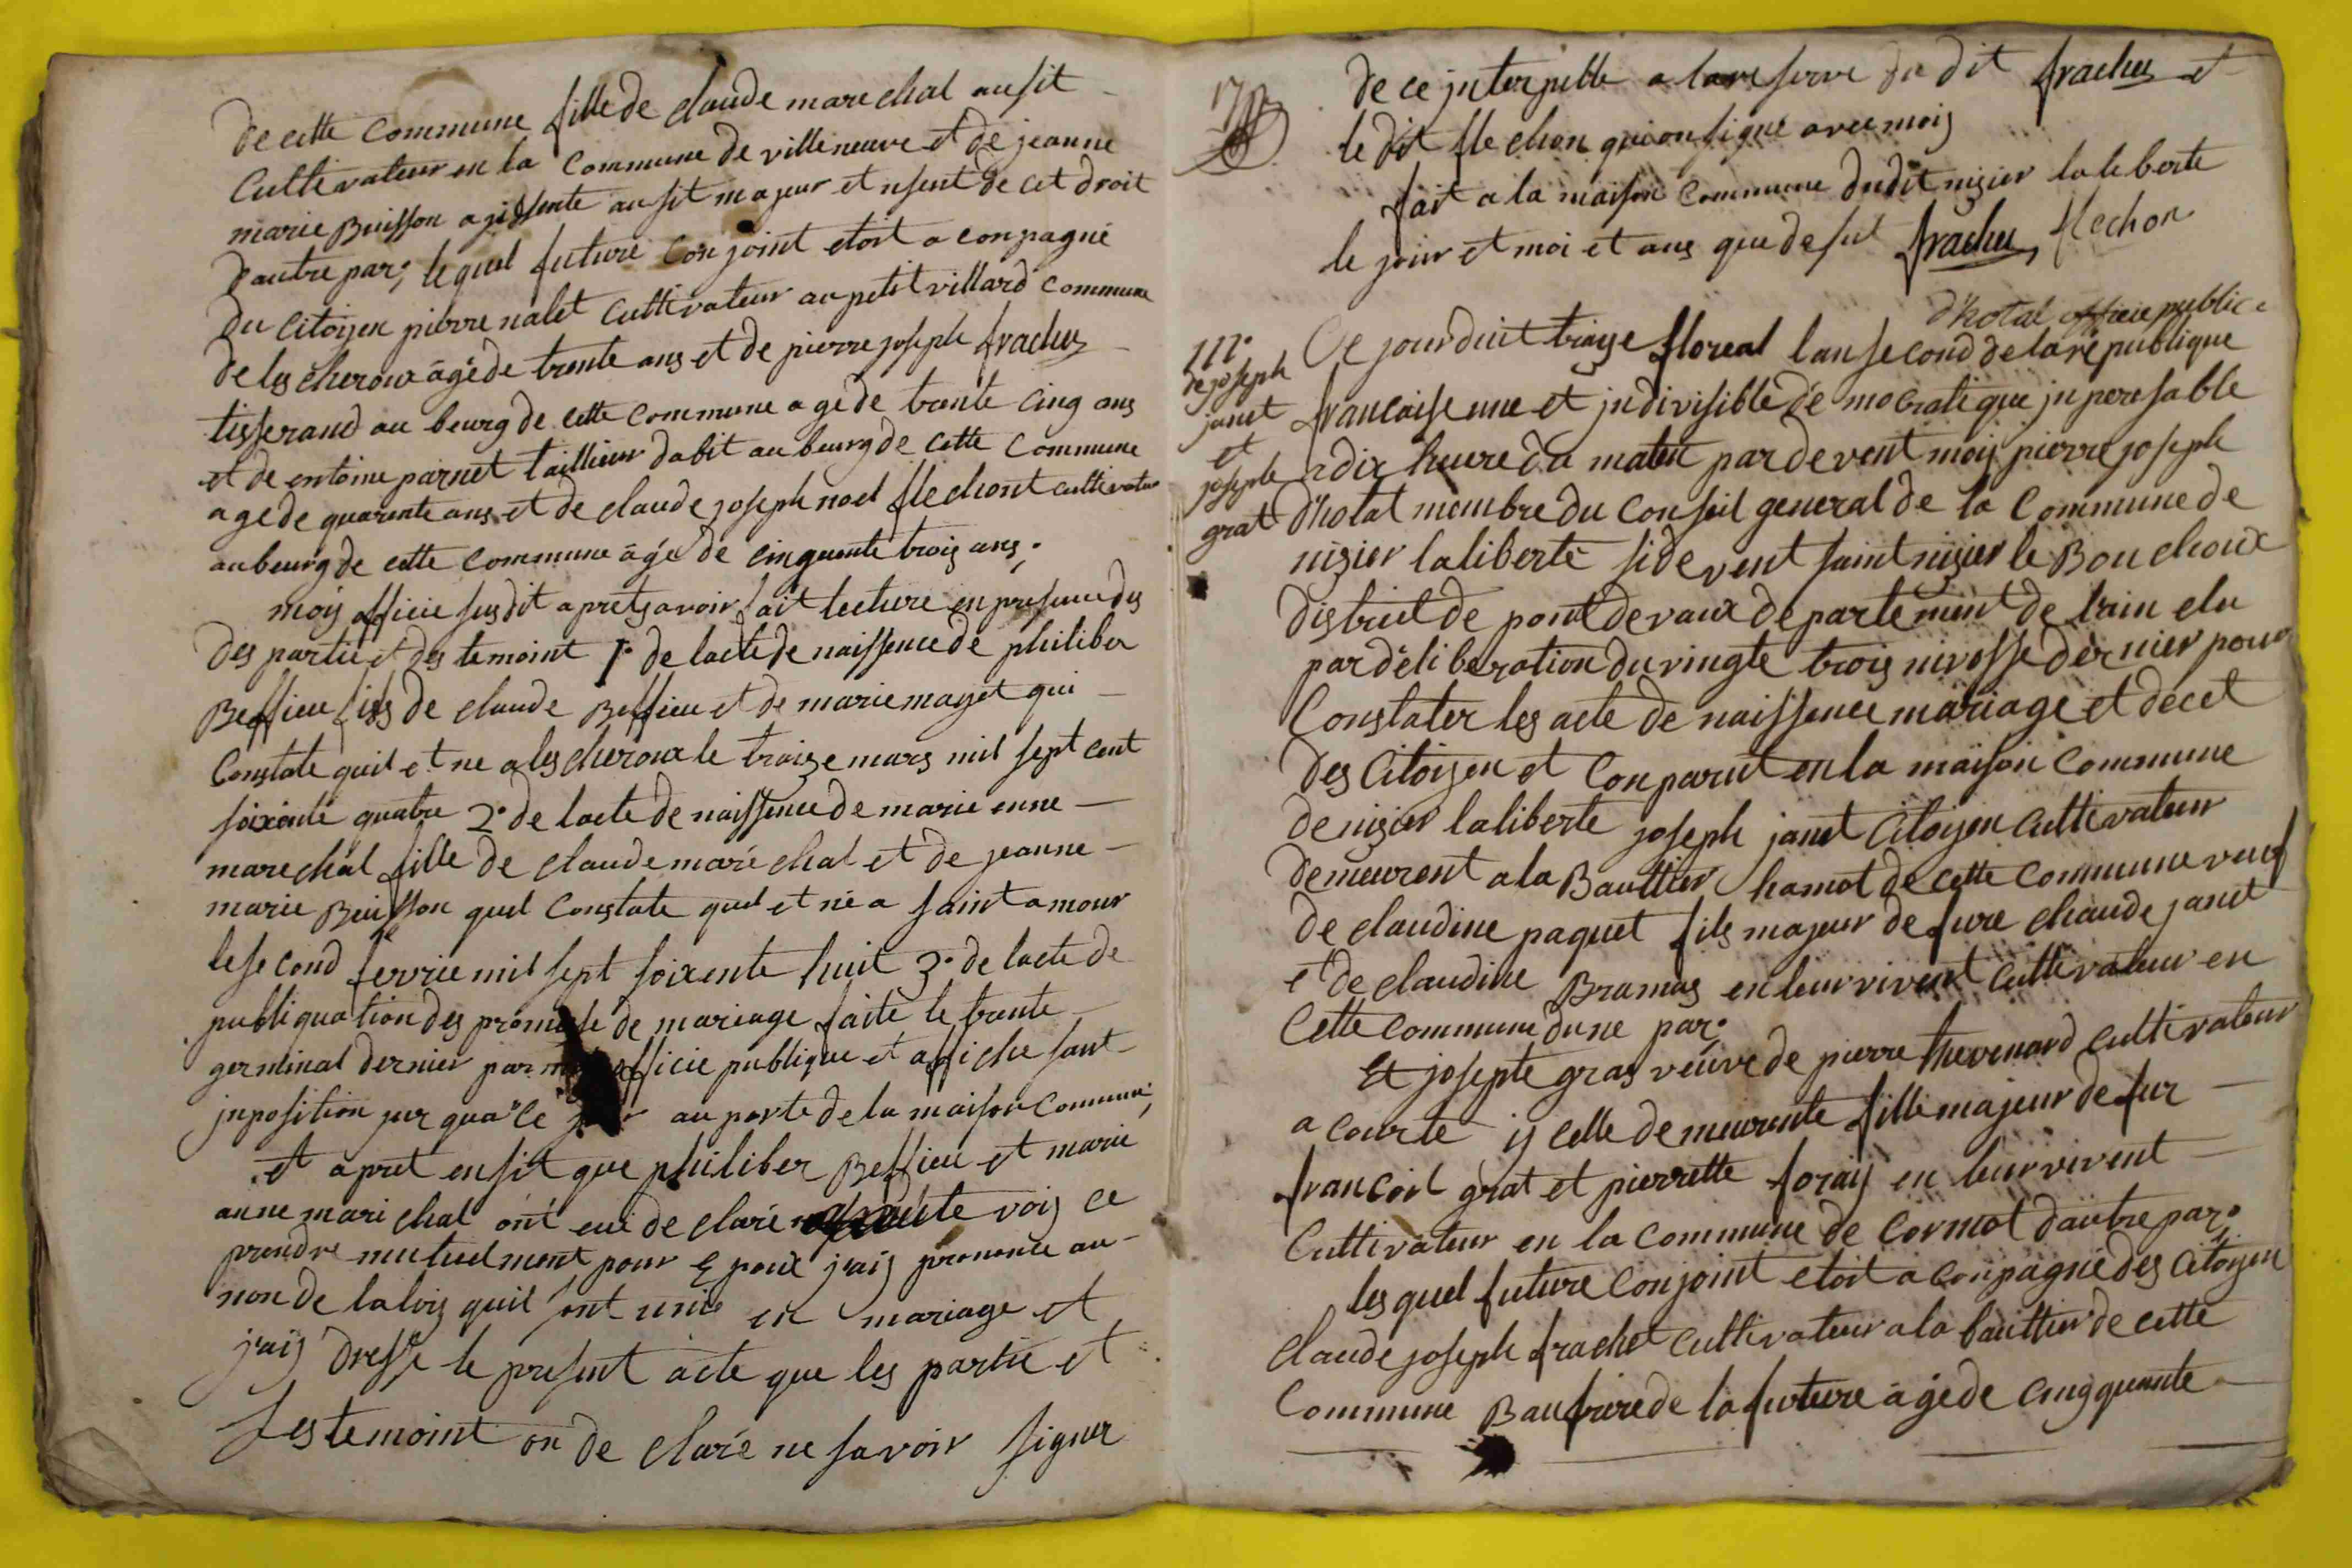 de cette Commune fille de claude marechal ausit
Cultivateur en la Commune de villeneuve et de jeanne
marie Buisson agissente ausit majeur et usent de cet droit
d'autre par; lequel future Conjoint etoit aconpagné
du Citoyen pierre nalet Cultivateur au petit villard commune
de les cheroux âgé de trente ans et de pierre joseph frachez
tisserand au beurg de cette Commune agé de trente cinq ans
et de entoine parnet taillieur dabit au beurg de cette Commune
agé de quarente ans et de claude joseph noel flechont cultivateur
au beurg de cette Commune âgé de cinquante trois ans;
moij officie susdit apret avoir fait lecture en presence des
des partie et des temoint 1° de lacte de naissence de philiber
Beffieu fils de claude Beffieu et de marie mayet qui
Constate quil et ne a les cheroux le traize mars mil sept cent
soixente quatre 2° de lacte de naissence de marie enne
marechal fille de claude maréchal et de jeanne
marie Buisson quel Constate quel et né a saint amour
le second fevrie mil sept soixente huit 3° de lacte de
publiquation des promesse de mariage faite le trente
germinal dernier par officie publique et affiche sant
jnposition jur qua ce au porte de la maison Commune;
et apret ensit que philiber Beffieu et marie
anne marichal ont eui de claré voij ce
prendre mutuelment pour Epoux j'aij prononce au
non de la loij quil sont unie en mariage et
j'aij dresse le present acte que les partie et
les temoint on de claré ne savoir signer
17
de ce jnterpellé a la reserve du dit frachez et
le dit flechon qui on signe avec moij
fait a la maison Commune dudit nizier la leberte
le jour et moi et ans que desut frachez flechon
d'hotal officie public
111°
de joseph
janet
et
josephe
grat
Ce jourduit traize floreal lan second de la republique
francaise une et jndivisible démocratique jnperisable
a dix heure du matin par devent moij pierre joseph
d'hotal membre du Conseil general de la Commune de
nizier la liberté sidevent saint nizier le Bouchoux
district de pont de vaux departement de l'ain elu
par déliberation du vingte trois nivosse dernier pour
Constater les acte de naissence mariage et decet
des Citoyen et Conparut en la maison Commune
de nizier la liberte joseph janet Citoyen Cultivateur
demeurent a la Bauttier hamot de cette Commune veuf
de claudine paquet fils majeur de fure claude janet
et de claudine Bramas en leur vivent Cultivateur en
Cette Commune dune par;
Et josepte gras veuve de pierre thevenard cultivateur
a courte ij celle demeurente fille majeur de fur
francoil grat et pierrette foraij en leur vivent
Cultivateur en la Commune de Cormot dautre par;
les quel future Conjoint etoit a conpagné des Citoyen
claude joseph frachet Cultivateur a la bauttier de cette
Commune Baufrere de la future âgé de Cinqquante